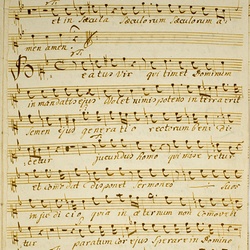 et in sæcula sæculorum sæculorum a
men amen.
Beatus vir qui timet Dominum
in mandatis ejus Volet nimis potens in terra erit
semen ejus generatio rectorum bene di
cetur jucundus homo qui mise retur
et comodat disponet sermones suos
in judicio, quia in æternum non comovebi
tur paratum cor ejus sperare in Domino